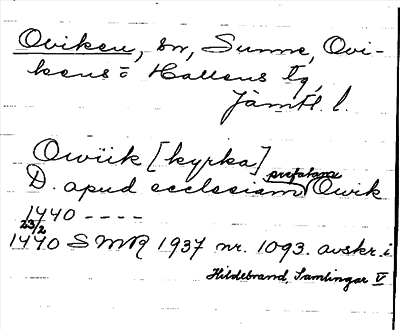 Oviken, sn, Sunne, Ovi-
kens o Hallens tg,
Jämtl. l.
Owiik [kyrka]
prefatam
D. apud ecclesiam Owik
1440 ----
23/2
1440 SMR 1937 nr. 1093. avskr. i
Hildebrand, Samlingar V